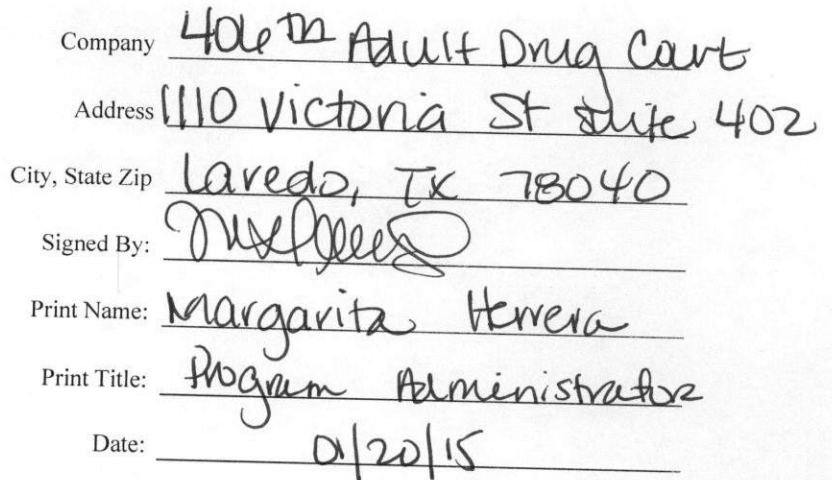 Company 406th Adult Drug Court
Address 1110 Victoria St Suite 402
City, State Zip Laredo, TX 78040
Signed By:
Print Name: Margarita Herrera
Print Title: Program Administrator
Date: 01/20/15